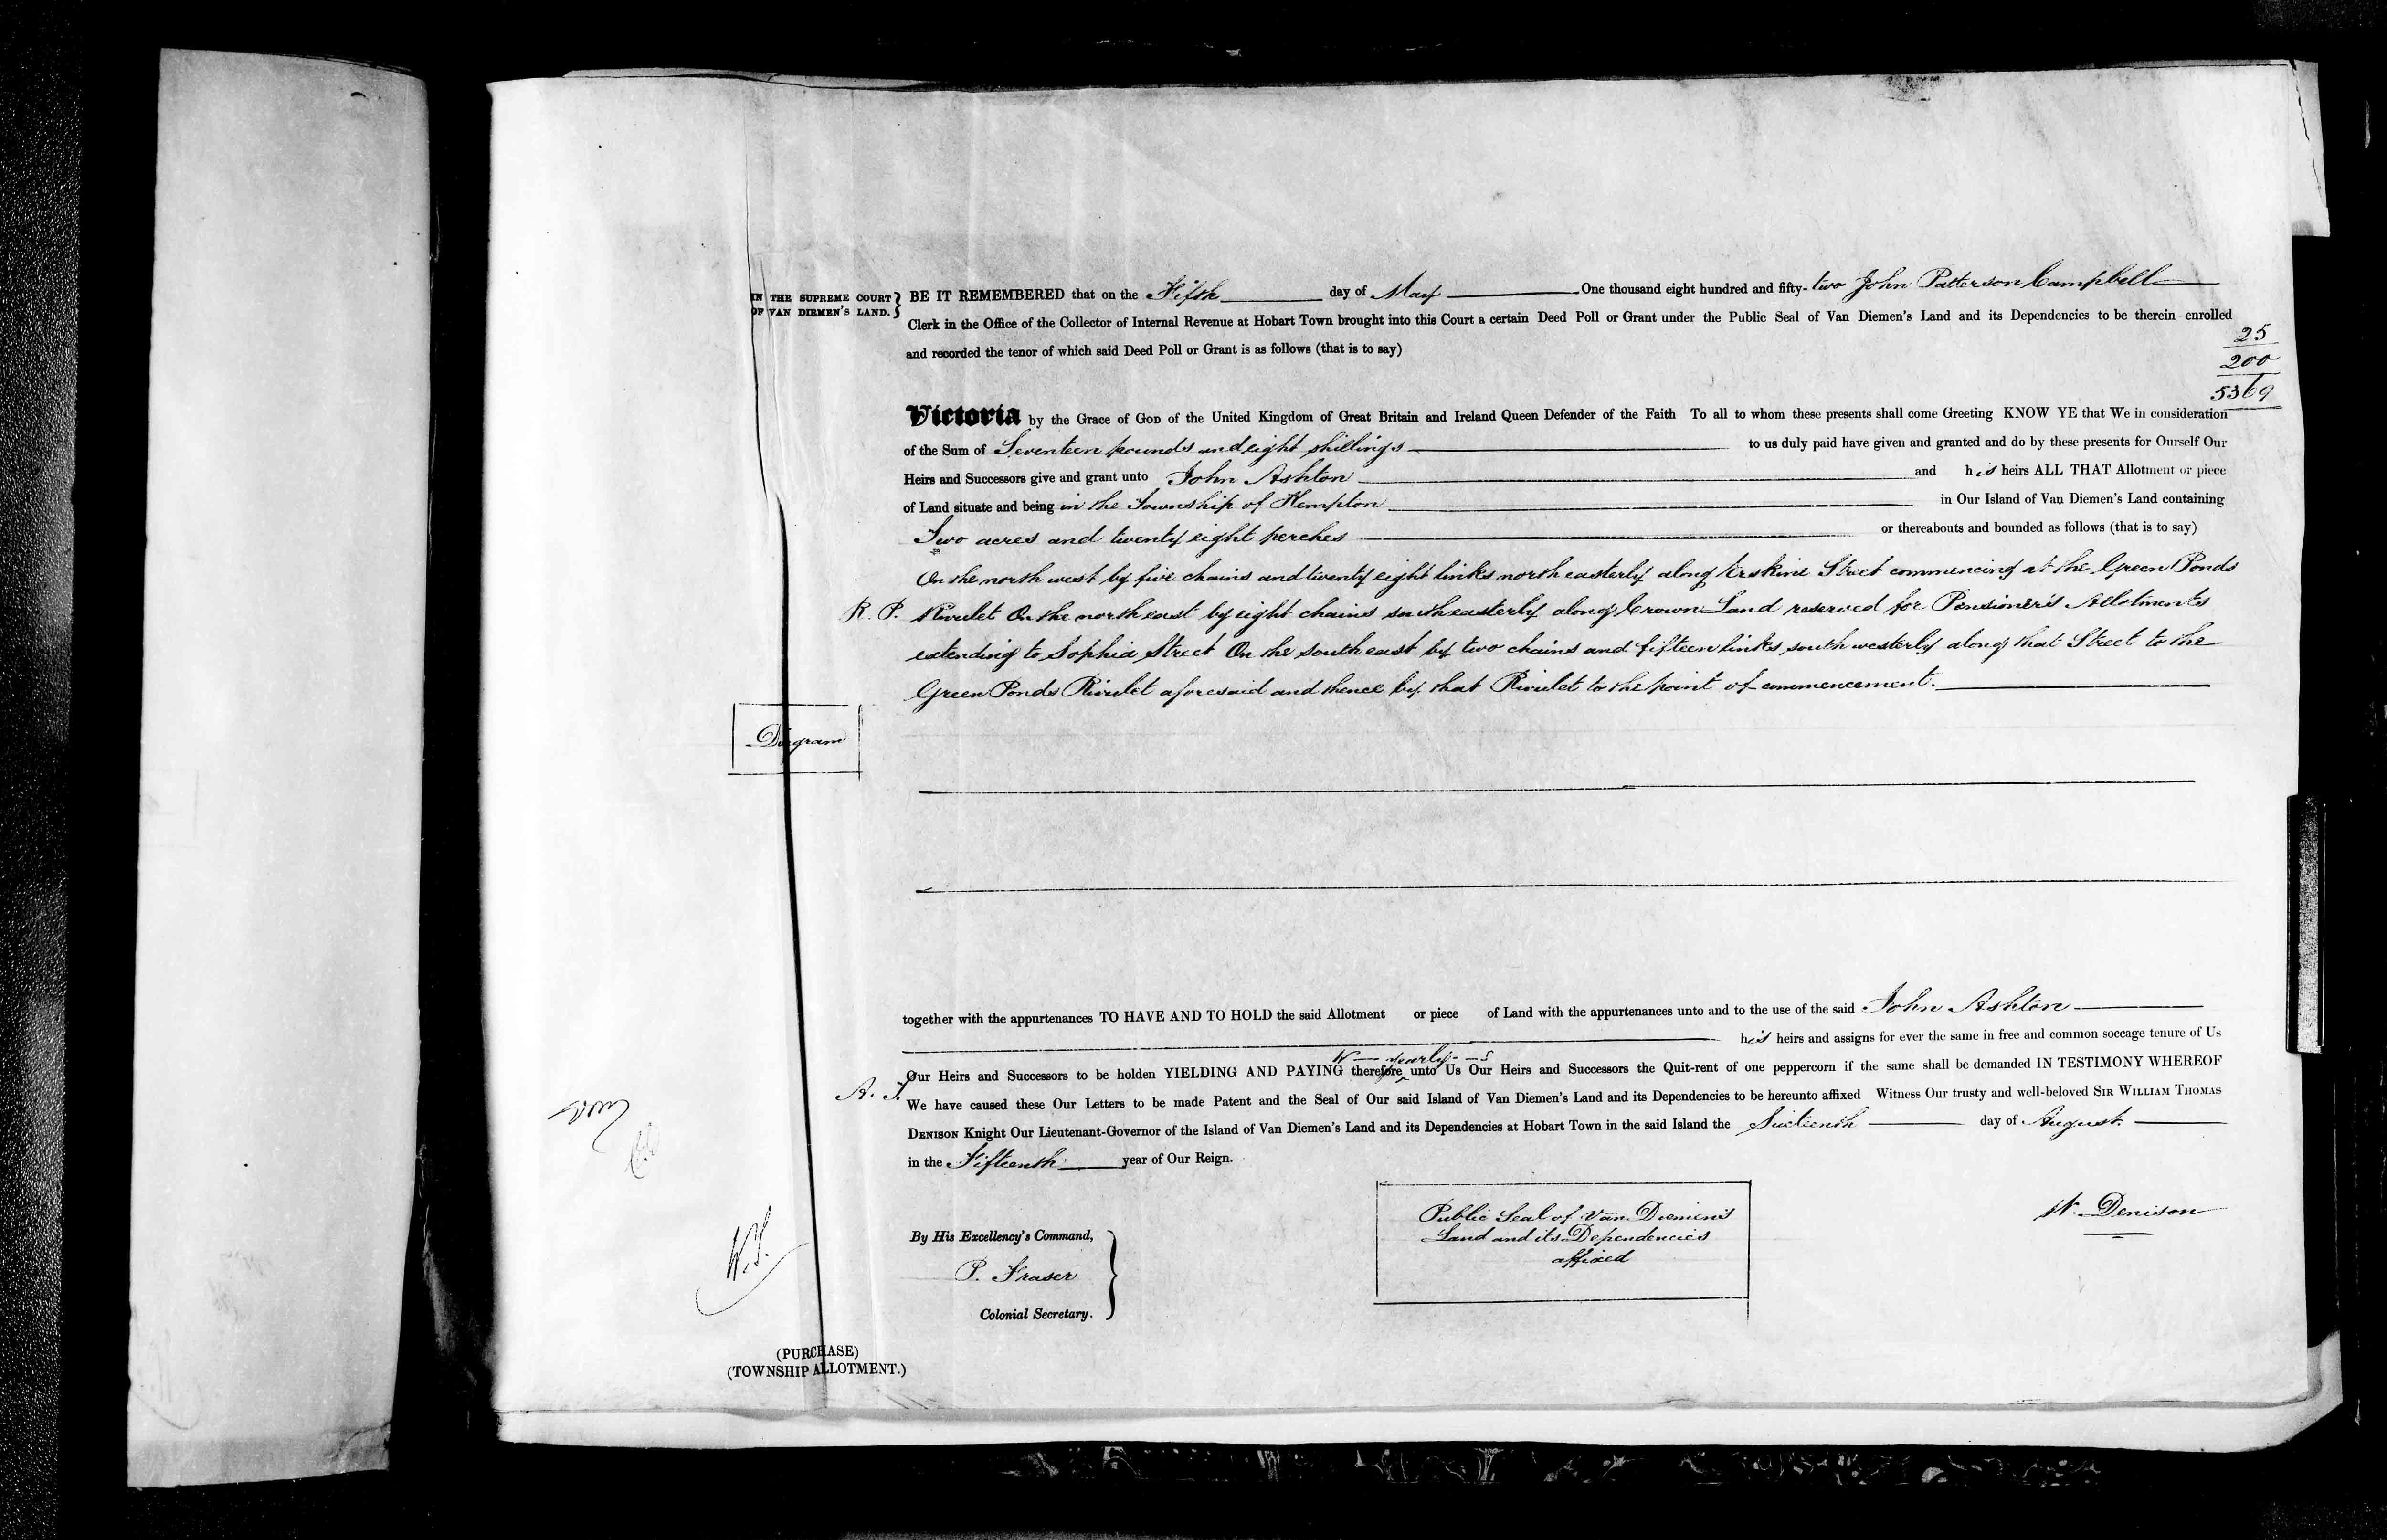 IN THE SUPREME COURT
OF VAN DIEMEN'S LAND.
BE IT REMEMBERED that on the Fifth day of May One thousand eight hundred and fifty-two John Patterson Campbell
Clerk in the Office of the Collector of Internal Revenue at Hobart Town brought into this Court a certain Deed Poll or Grant under the Public Seal of Van Diemen's Land and its Dependencies to be therein enrolled
and recorded the tenor of which said Deed Poll or Grant is as follows (that is to say)
25
200
5369
Victoria by the Grace of God of the United Kingdom of Great Britain and Ireland Queen Defender of the Faith To all to whom these presents shall come Greeting KNOW YE that We in consideration
of the Sum of Seventeen pounds and eight shillings to us duly paid have given and granted and do by these presents for Ourself Our
Heirs and Successors give and grant unto John Ashton and his heirs ALL THAT Allotment or piece
of Land situate and being in the Township of Kempton in Our Island of Van Diemen's Land containing
Two acres and twenty eight perches or thereabouts and bounded as follows (that is to say)
On the north west by five chains and twenty eight links north easterly along Erskine Street commencing at the Green Ponds
R. P. Rivulet On the north east by eight chains south easterly along Crown Land reserved for Pensioner's Allotments
extending to Sophia Street On the south east by two chains and fifteen links south westerly along that Street to the
Green Ponds Rivulet aforesaid and thence by that Rivulet to the point of commencement.
Diagram
together with the appurtenances TO HAVE AND TO HOLD the said Allotment or piece of Land with the appurtenances unto and to the use of the said John Ashton
his heirs and assigns for ever the same in free and common soccage tenure of Us
yearly
Our Heirs and Successors to be holden YIELDING AND PAYING therefore unto Us Our Heirs and Successors the Quit-rent of one peppercorn if the same shall be demanded IN TESTIMONY WHEREOF
We have caused these Our Letters to be made Patent and the Seal of Our said Island of Van Diemen's Land and its Dependencies to be hereunto affixed Witness Our trusty and well-beloved SIR WILLIAM THOMAS
DENISON Knight Our Lieutenant-Governor of the Island of Van Diemen's Land and its Dependencies at Hobart Town in the said Island the Sixteenth day of August
in the Fifteenth year of Our Reign.
W. Denison
Public Seal of Van Diemen's
Land and its Dependencies
affixed
By His Excellency's Command,
P. Fraser
Colonial Secretary.
(PURCHASE)
(TOWNSHIP ALLOTMENT.)